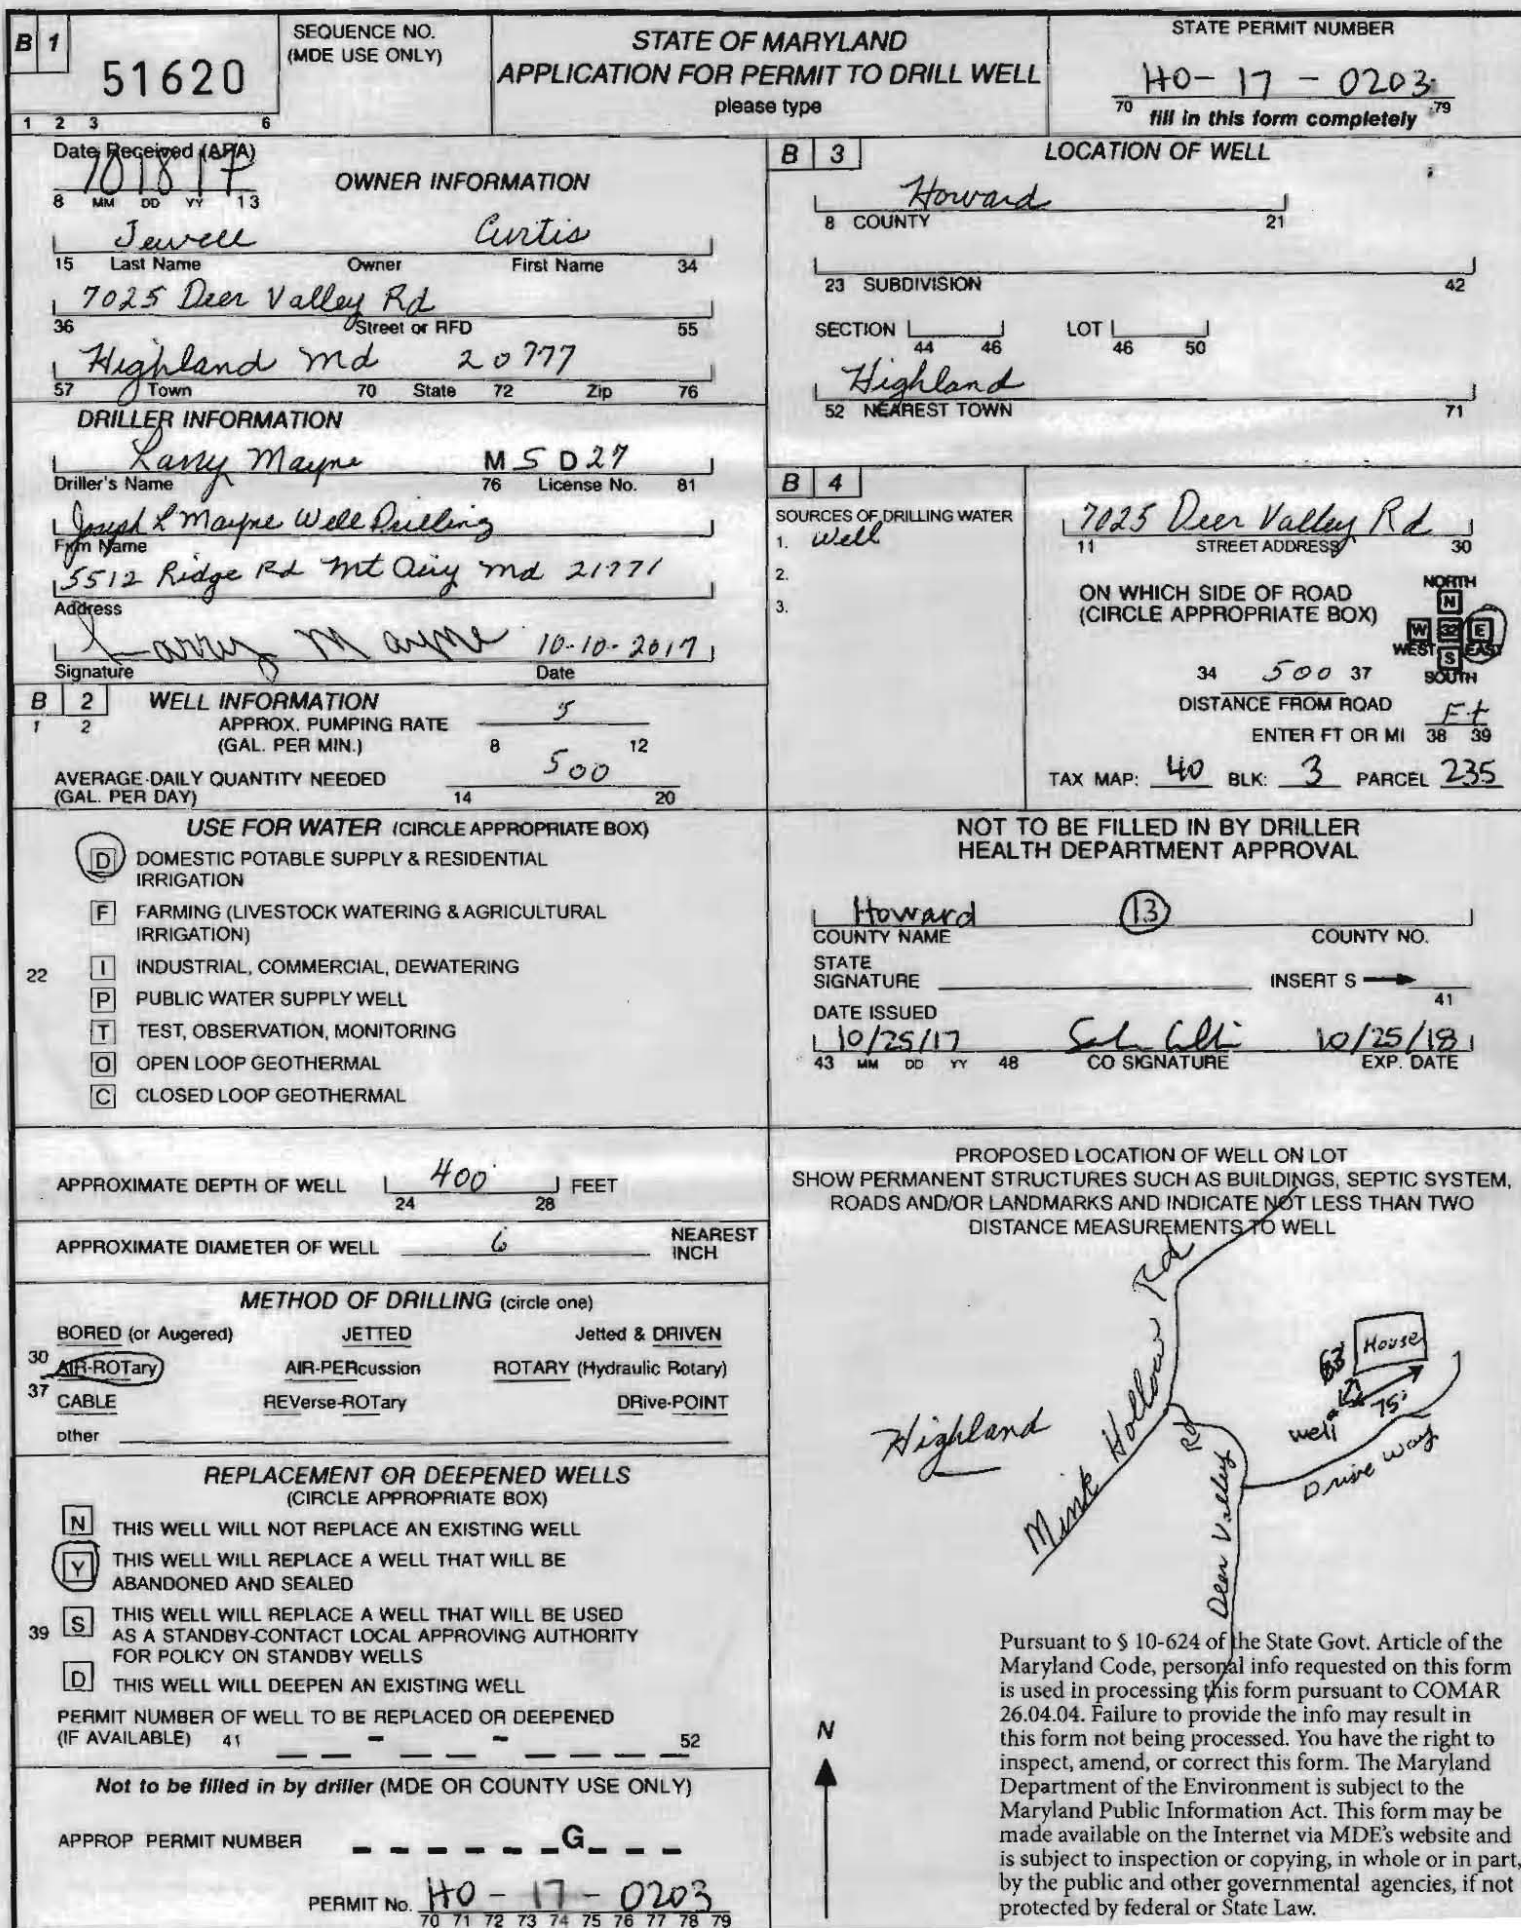 B 1
51620
1 2 3 6
SEQUENCE NO.
(MDE USE ONLY)
STATE OF MARYLAND
APPLICATION FOR PERMIT TO DRILL WELL
please type
STATE PERMIT NUMBER
HO- 17 - 0203
70 fill in this form completely 79
Date Received (APA)
101817
8 MM DD YY 13
OWNER INFORMATION
Jewell Curtis
15 Last Name Owner First Name 34
7025 Deer Valley Rd
36 Street or RFD 55
Highland Md 20777
57 Town 70 State 72 Zip 76
DRILLER INFORMATION
Larry Mayne M S D 27
Driller's Name 76 License No. 81
Joseph L Mayne Well Drilling
Firm Name
5512 Ridge Rd Mt Airy Md 21771
Address
Larry Mayne 10-10-2017
Signature Date
B 2 WELL INFORMATION
1 2
APPROX. PUMPING RATE 5
(GAL. PER MIN.) 8 12
AVERAGE DAILY QUANTITY NEEDED 500
(GAL. PER DAY) 14 20
USE FOR WATER (CIRCLE APPROPRIATE BOX)
D DOMESTIC POTABLE SUPPLY & RESIDENTIAL
IRRIGATION
F FARMING (LIVESTOCK WATERING & AGRICULTURAL
IRRIGATION)
22 I INDUSTRIAL, COMMERCIAL, DEWATERING
P PUBLIC WATER SUPPLY WELL
T TEST, OBSERVATION, MONITORING
O OPEN LOOP GEOTHERMAL
C CLOSED LOOP GEOTHERMAL
APPROXIMATE DEPTH OF WELL 400 FEET
24 28
APPROXIMATE DIAMETER OF WELL 6 NEAREST
INCH
METHOD OF DRILLING (circle one)
BORED (or Augered) JETTED Jetted & DRIVEN
30 AIR-ROTary AIR-PERcussion ROTARY (Hydraulic Rotary)
37 CABLE REVerse-ROTary DRive-POINT
other
REPLACEMENT OR DEEPENED WELLS
(CIRCLE APPROPRIATE BOX)
N THIS WELL WILL NOT REPLACE AN EXISTING WELL
Y THIS WELL WILL REPLACE A WELL THAT WILL BE
ABANDONED AND SEALED
39 S THIS WELL WILL REPLACE A WELL THAT WILL BE USED
AS A STANDBY-CONTACT LOCAL APPROVING AUTHORITY
FOR POLICY ON STANDBY WELLS
D THIS WELL WILL DEEPEN AN EXISTING WELL
PERMIT NUMBER OF WELL TO BE REPLACED OR DEEPENED
(IF AVAILABLE) 41 - - 52
Not to be filled in by driller (MDE OR COUNTY USE ONLY)
APPROP PERMIT NUMBER G
PERMIT No. HO - 17 - 0203
70 71 72 73 74 75 76 77 78 79
B 3 LOCATION OF WELL
Howard
8 COUNTY 21
23 SUBDIVISION 42
SECTION LOT
44 46 46 50
Highland
52 NEAREST TOWN 71
B 4
SOURCES OF DRILLING WATER
1. Well
2.
3.
7025 Deer Valley Rd
11 STREET ADDRESS 30
ON WHICH SIDE OF ROAD
(CIRCLE APPROPRIATE BOX)
NORTH
N
W 32 E
WEST EAST
S
SOUTH
34 500 37
DISTANCE FROM ROAD Ft
ENTER FT OR MI 38 39
TAX MAP: 40 BLK: 3 PARCEL 235
NOT TO BE FILLED IN BY DRILLER
HEALTH DEPARTMENT APPROVAL
Howard 13
COUNTY NAME COUNTY NO.
STATE
SIGNATURE INSERT S
41
DATE ISSUED
10/25/17 10/25/18
43 MM DD YY 48 CO SIGNATURE EXP. DATE
PROPOSED LOCATION OF WELL ON LOT
SHOW PERMANENT STRUCTURES SUCH AS BUILDINGS, SEPTIC SYSTEM,
ROADS AND/OR LANDMARKS AND INDICATE NOT LESS THAN TWO
DISTANCE MEASUREMENTS TO WELL
Mink Hollow Rd
House
75'
well
Drive way
Highland
Deer Valley Rd
N
Pursuant to § 10-624 of the State Govt. Article of the
Maryland Code, personal info requested on this form
is used in processing this form pursuant to COMAR
26.04.04. Failure to provide the info may result in
this form not being processed. You have the right to
inspect, amend, or correct this form. The Maryland
Department of the Environment is subject to the
Maryland Public Information Act. This form may be
made available on the Internet via MDE's website and
is subject to inspection or copying, in whole or in part,
by the public and other governmental agencies, if not
protected by federal or State Law.